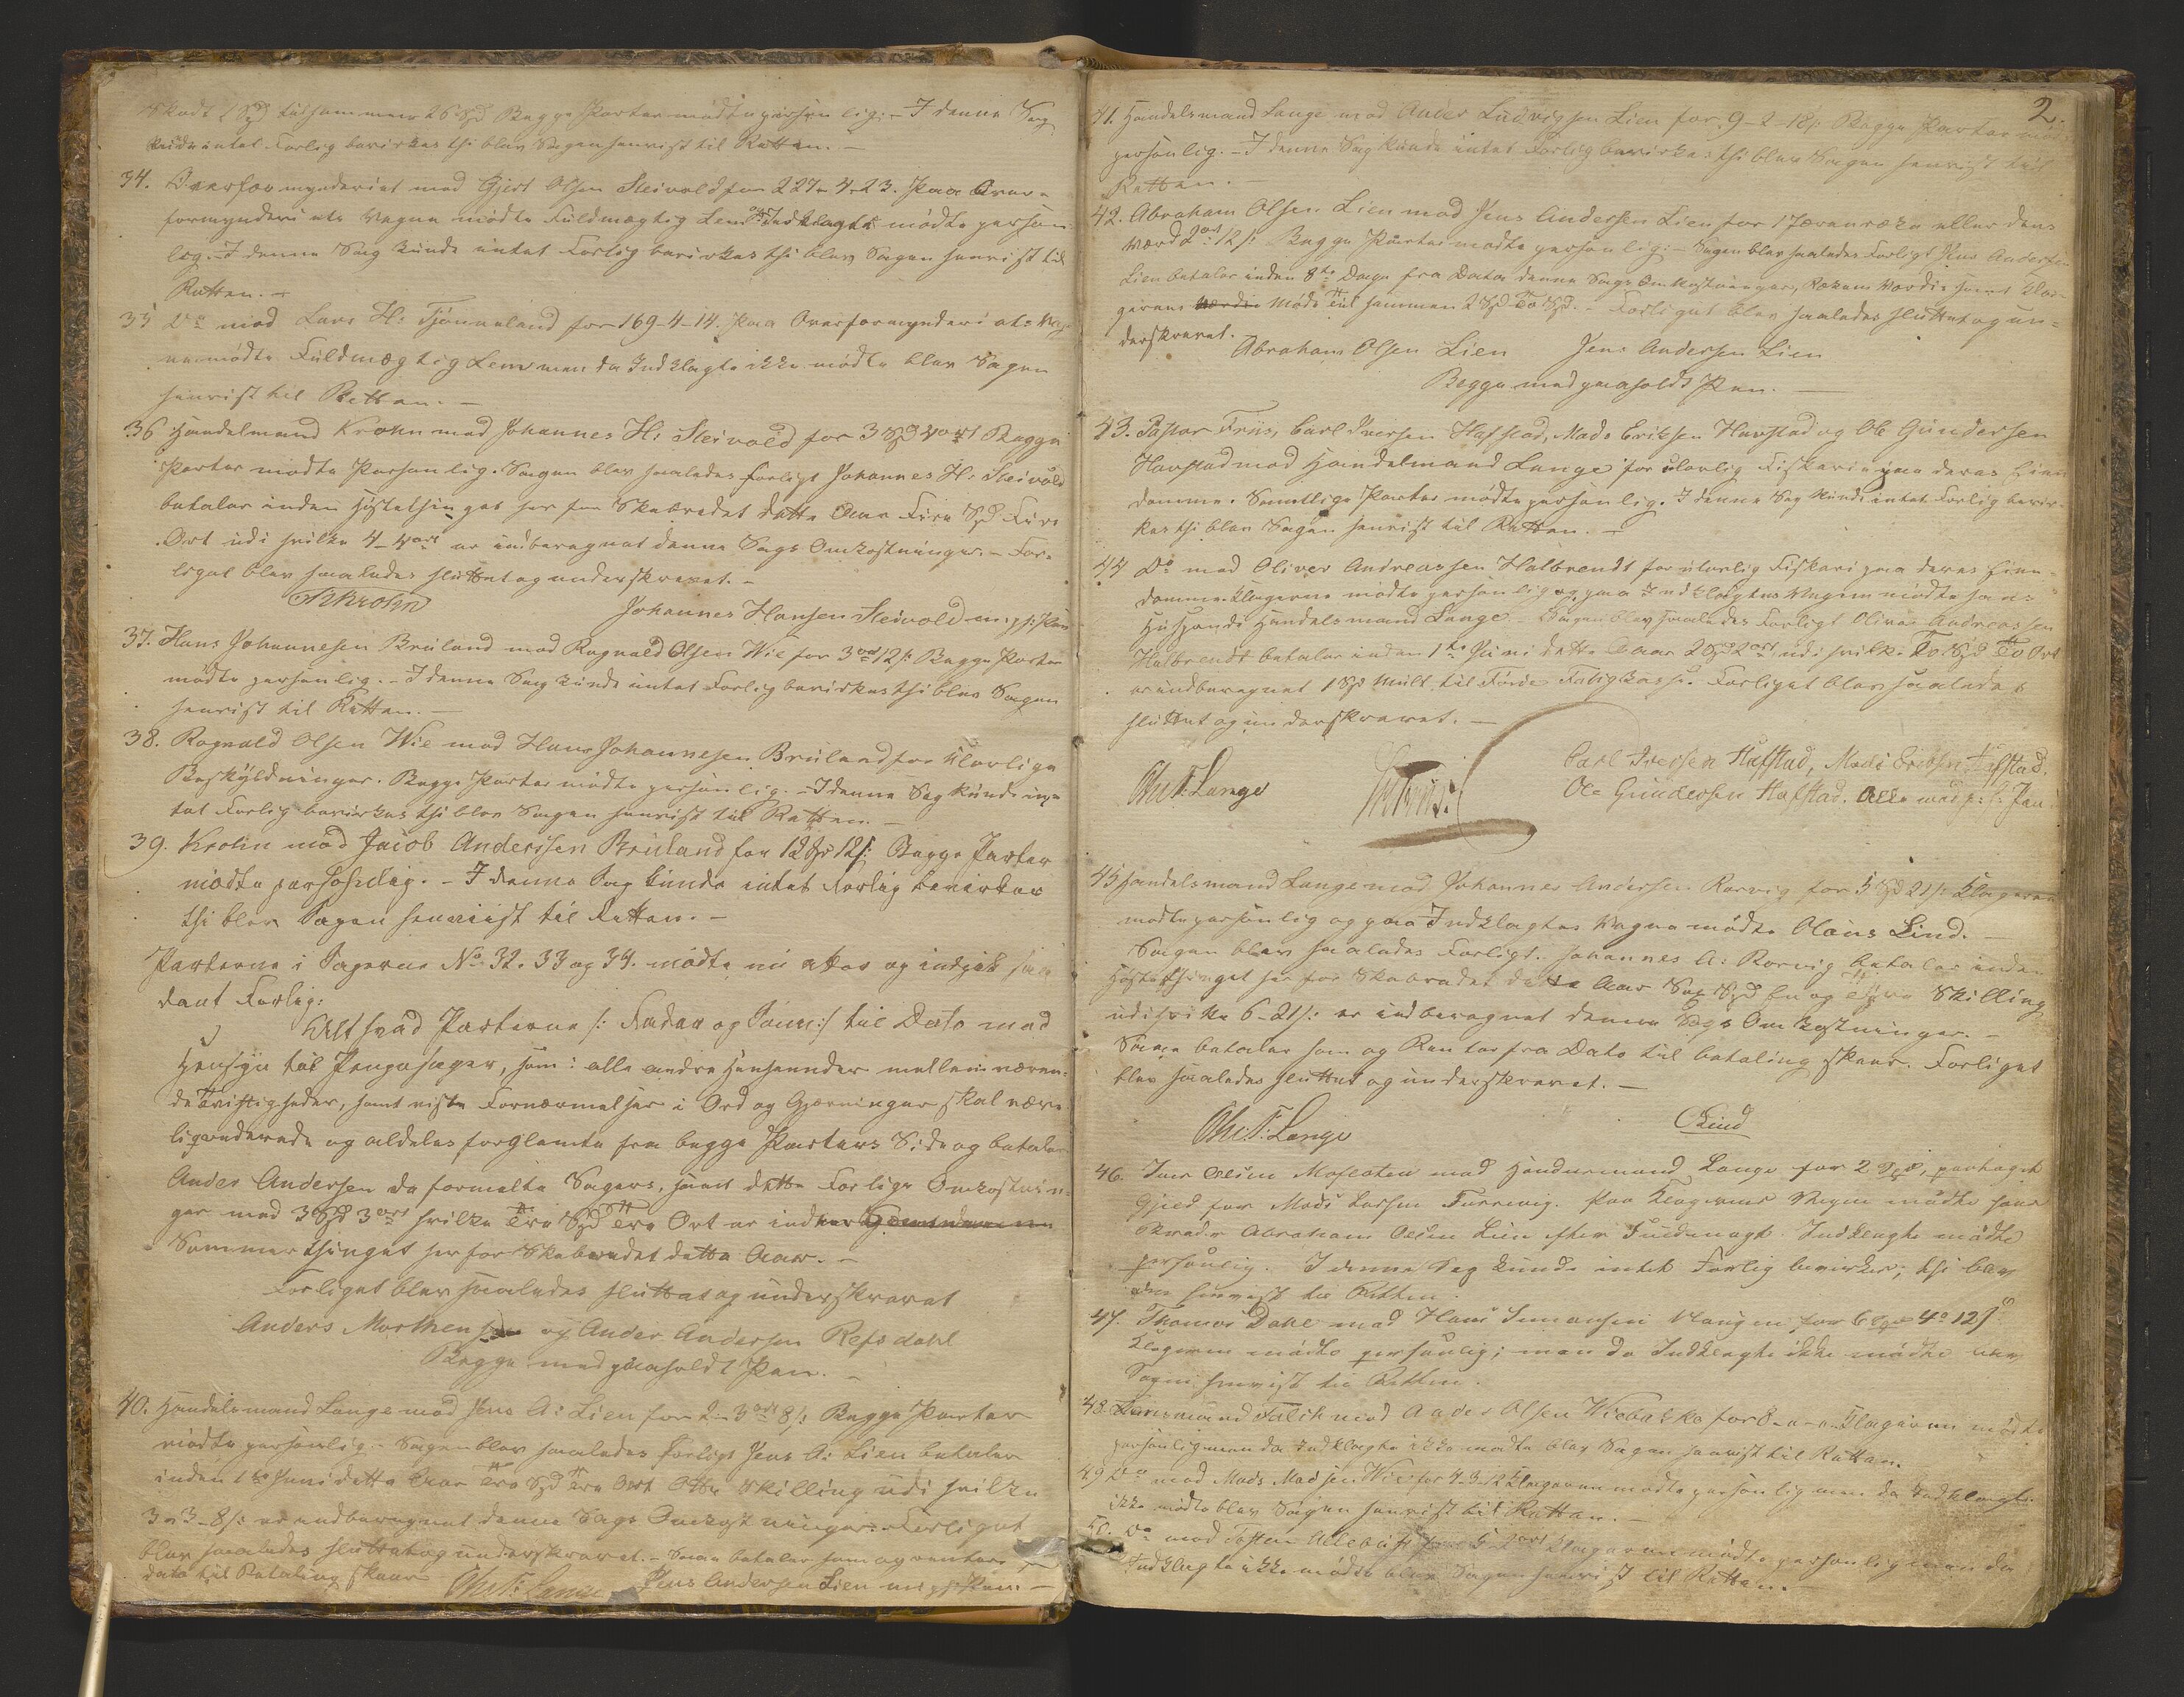 Skadt 1 Spd tilsammen 26 Spd Begge Parter mødte personlig. – I denne Sag
kunde intet Forlig bevirkes thi blev Sagen henvist til Retten. –
34. Overformynderiet mod Gjert Olsen Sleivold for 227-4-23. Paa Over-
formynderiets Vegne mødte Fuldmægtig Lem og Indklagte mødte person-
lig. I denne Sag kunde intet Forlig bevirkes thi blev Sagen henvist til
Retten. –
35 Do mod Lars H: Tjønneland for 169-4-14. Paa Overformynderiets Veg-
ne mødte Fuldmægtig Lem men da Indklagte ikke mødte blev Sagen
henvist til Retten. –
36 Handelmand Krohn mod Johannes H: Sleivold for 3 Spd 4 ort Begge
Parter mødte Personlig. Sagen blev saaledes forligt Johannes H: Sleivold
betaler inden Høstethinget her for Skibredet dette Aar Fire Spd Fire
Ort udi hvilke 4-4 ort er indberegnet denne Sags Omkostninger. – For-
liget blev saaledes sluttet og underskrevet. –
Krohn Johannes Hansen Sleivold m. p. h: Pen
37. Hans Johannesen Bruland mod Ragnald Olsen Wie for 3 ort 12 s: Begge Parter
mødte personlig. – I denne Sag kunde intet Forlig bevirkes thi blev Sagen
henvist til Retten. –
38. Ragnald Olsen Wie mod Hans Johannesen Bruland for ulovlige
Beskyldninger. Begge Parter mødte personlig. – I denne Sag kunde in-
tet Forlig bevirkes thi blev Sagen henvist til Retten. –
39. Krohn mod Jacob Anderssen Bruland for 12 Spd 12 s: Begge Parter
mødte personlig. – I denne Sag kunde intet Forlig bevirkes
thi blev Sagen henviist til Retten. –
Parterne i Sagerne No 32. 33 og 34. mødte nu atter og indgik saa
dant Forlig:
Alt hvad Parterne /: Fader og Sønn :/ til Dato med
Hensyn til Pengesager, som i alle andre Henseender mellem væren-
de Tvistigheder, samt viste Fornærmelser i Ord og Gjerninger skal være
ligquiderede og aldeles forglemte fra begge Parters Side og betaler
Ander Andersen da formelte Sagers, samt dette Forligs Omkostnin-
ger med 3 Spd 3 ort hvilke Tre Spd Tre Ort er
Sommerthinget her for Skibredet dette Aar. –
Forliget blev saaledes sluttet og underskrevet
Anders Morthensen og Ander Andersen Refsdahl
Begge med paaholdt Pen. –
40. Handelsmand Lange mod Jens A: Lien for 2-3 ort 8 s: Begge Parter
mødte personlig. – Sagen blev saaledes forligt Jens A: Lien betaler
inden 1te Juni dette Aar Tre Spd Tre Ort Otte Skilling udi hvilke
3-3-8 s: er indberegnet denne Sags Omkostninger. Forliget
blev saaledes sluttet og underskrevet. – Saa betaler som og renter fra
dato til Betaling skeer
Chr. F. Lange Jens Andersen Lien m. p. h: Pen. –
2.
41. Handelsmand Lange mod Ander Ludvigsen Lien for 9-2-12 s: Begge Parter mødte
personlig. – I denne Sag kunde intet Forlig bevirkes thi blev Sagen henvist til
Retten. –
42. Abraham Olsen Lien mod Jens Anderssen Lien for 1 Jernræke eller dens
Værd 2 ort 12 s: Begge Parter mødte personlig. – Sagen blev saaledes Forligt Jens Andersen
Lien betaler inden 8te Dage fra Dato denne Sags Omkostninger, Rekens Værdie samt Kla-
gerens Møde Til sammen 2 Spd To Spd. – Forliget blev saaledes sluttet og un-
derskrevet.
Abraham Olsen Lien Jens Andersen Lien
Begge med paaholdt Pen. –
43. Pastor Friis, Carl Iversen Hafstad, Mads Eriksen Havstad og Ole Gundersen
Havstad mod Handelmand Lange for ulovlig Fiskerie paa deres Eien-
domme. Samtlige Parter mødte personlig. I denne Sag kunde intet Forlig bevir-
kes thi blev Sagen henvist til Retten. –
44 Do mod Oliver Andreassen Halbrendt for ulovlig Fiskeri paa deres Eien-
domme. Klagerne mødte personlig og paa Indklagtes Vegne mødte hans
Husbonde Handelsmand Lange. – Sagen blev saaledes Forligt Oliver Andreassen
Halbrendt betaler inden 1te Juni dette Aar 2 Spd 2 ort, udi hvilke To Spd To Ort
er indberegnet 1 Spd Mult til Førde Fatigkasse. Forliget blev saaledes
sluttet og underskrevet. –
Chr. F. Lange Friis. Carl Iversen Hafstad, Mads Eriksen Hafstad.
Ole Gundersen Hafstad. Alle med p: h: Pen
45 Handelsmand Lange mod Johannes Andersen Rørvig for 5 Spd 21 s: Klageren
mødte personlig og paa Indklagtes Vegne mødte Olaus Lind.
Sagen blev saaledes Forligt. Johannes A: Rørvig betaler inden
Høstethinget her for Skibredet dette Aar Sex Spd En og Tyve Skilling
udi hvilke 6-21 s: er indberegnet denne Sags Omkostninger. –
Saa betales som og Renter fra Dato til betaling skeer. Forliget
blev saaledes sluttet og underskrevet. –
Chr. F. Lange Lind
46. Iver Olsen Mofloten mod Handelsmand Lange for 2 Spd, paataget
Gjeld for Mads Larsen Furevig. Paa Klagerens Vegne mødte
Skræder Abraham Olsen Lien efter Fuldmagt. Indklagte mødte
personlig. I denne Sag kunde intet Forlig bevirkes; thi blev
den henvist til Retten.
47. Thomas Dahl mod Hans Simonsen Haugen for 6 Spd 4o 12 s
Klageren mødte personlig; men da Indklagte ikke mødte blev
Sagen henvist til Retten.
48. Lensmand Falch mod Ander Olsen Viebakke for 8-0-0. Klageren mødte
personlig men da Indklagte ikke mødte blev Sagen henvist til Retten.
49 Do mod Mads Madsen Wie for 4-3-12 Klageren mødte personlig men da Indklagte
ikke mødte blev Sagen henvist til Retten. –
50. Do mod Tosten for 5-2 ort Klageren mødte personlig men da
Indklagte ikke mødte blev Sagen henvist til Retten. –